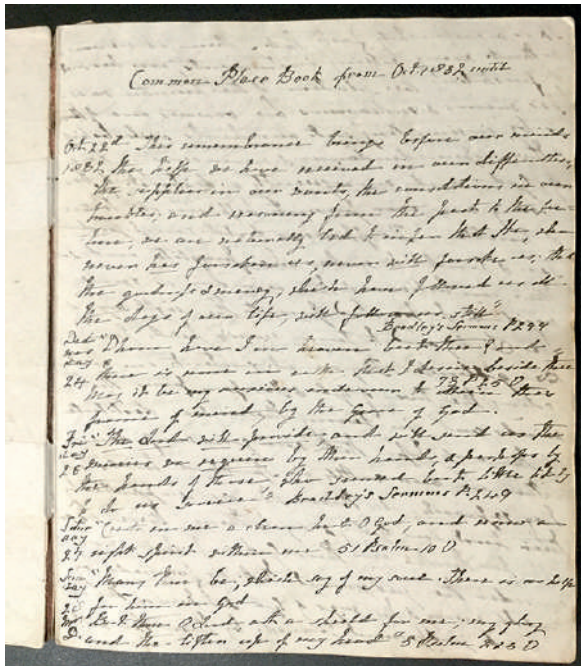 Common Place Book from Oct 1832 until
Oct 22d This remembrance brings before our minds
1832 the help we have received in our difficulties,
the supplies in our wants, the consolations in our
troubles, and reasoning from the past to the fu-
ture, we are naturally led to infer that He, who
never has forsaken us, never will forsake us; that
the goodness & mercy, which have followed us all
the days of our life, will follow us still"
Bradley's Sermons P 244
Whom have I in heaven but thee? and
24 there is none on earth that I desire beside thee
73 P 25 V
May it be my anxious endeavour to attain this
frame of mind, by the Grace of God.
Fri "The Lord will provide, and will send us the
day
26 means we require by the hands, perhaps by
the hands of those, who seemed but little likely
to do us service" Bradley's Sermons P. 249
day
27 right spirit within me" 51 Psalm 10 V
"Create in me a clean heart O God, and renew a
"Many there be, which say of my soul. There is no help
day
28 for him in God
But thou O Lord, art a shield for me; my glory
and the lifter up of my head"